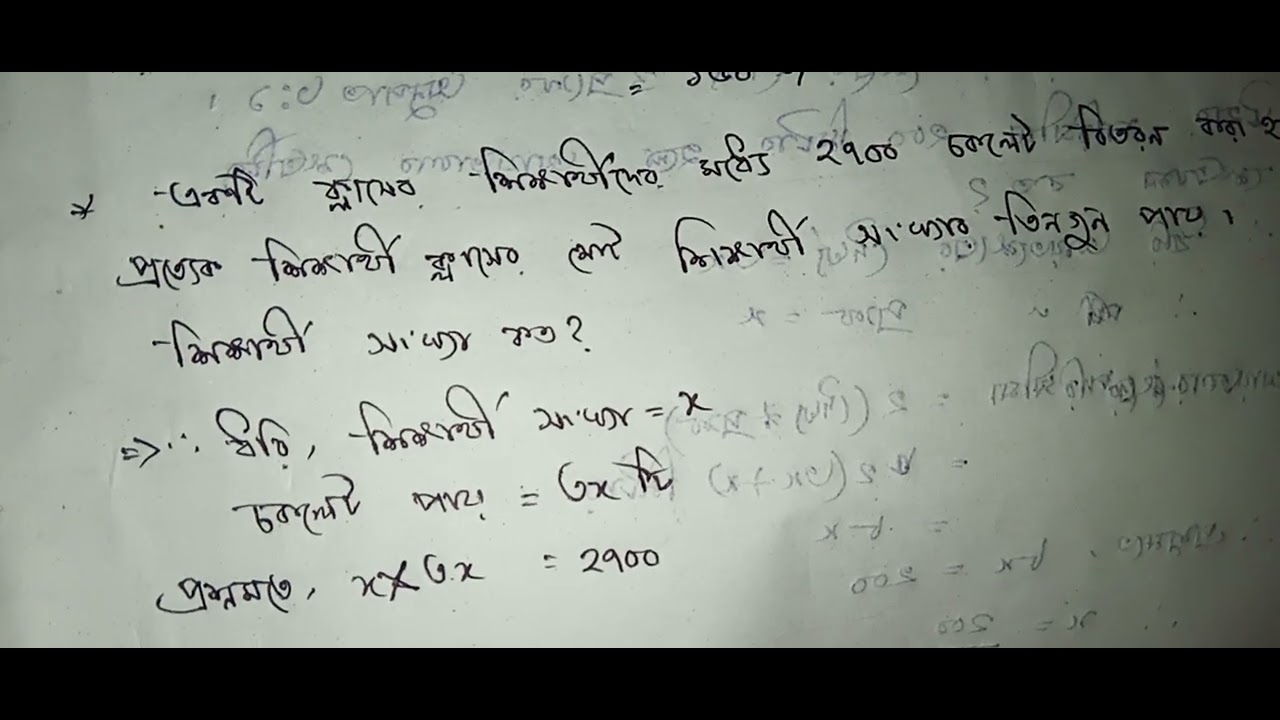 * একটি ক্লাসের শিক্ষার্থীদের মধ্যে ২৭০০ চকলেট বিতরন করা হ
প্রত্যেক শিক্ষার্থী ক্লাসের মোট শিক্ষার্থী সংখ্যার তিনগুন পায়।
শিক্ষার্থী সংখ্যা কত?
=> ∴ ধরি, শিক্ষার্থী সংখ্যা = x
চকলেট পায় = ৩x টি
প্রশ্নমতে, x × ৩x = ২৭০০